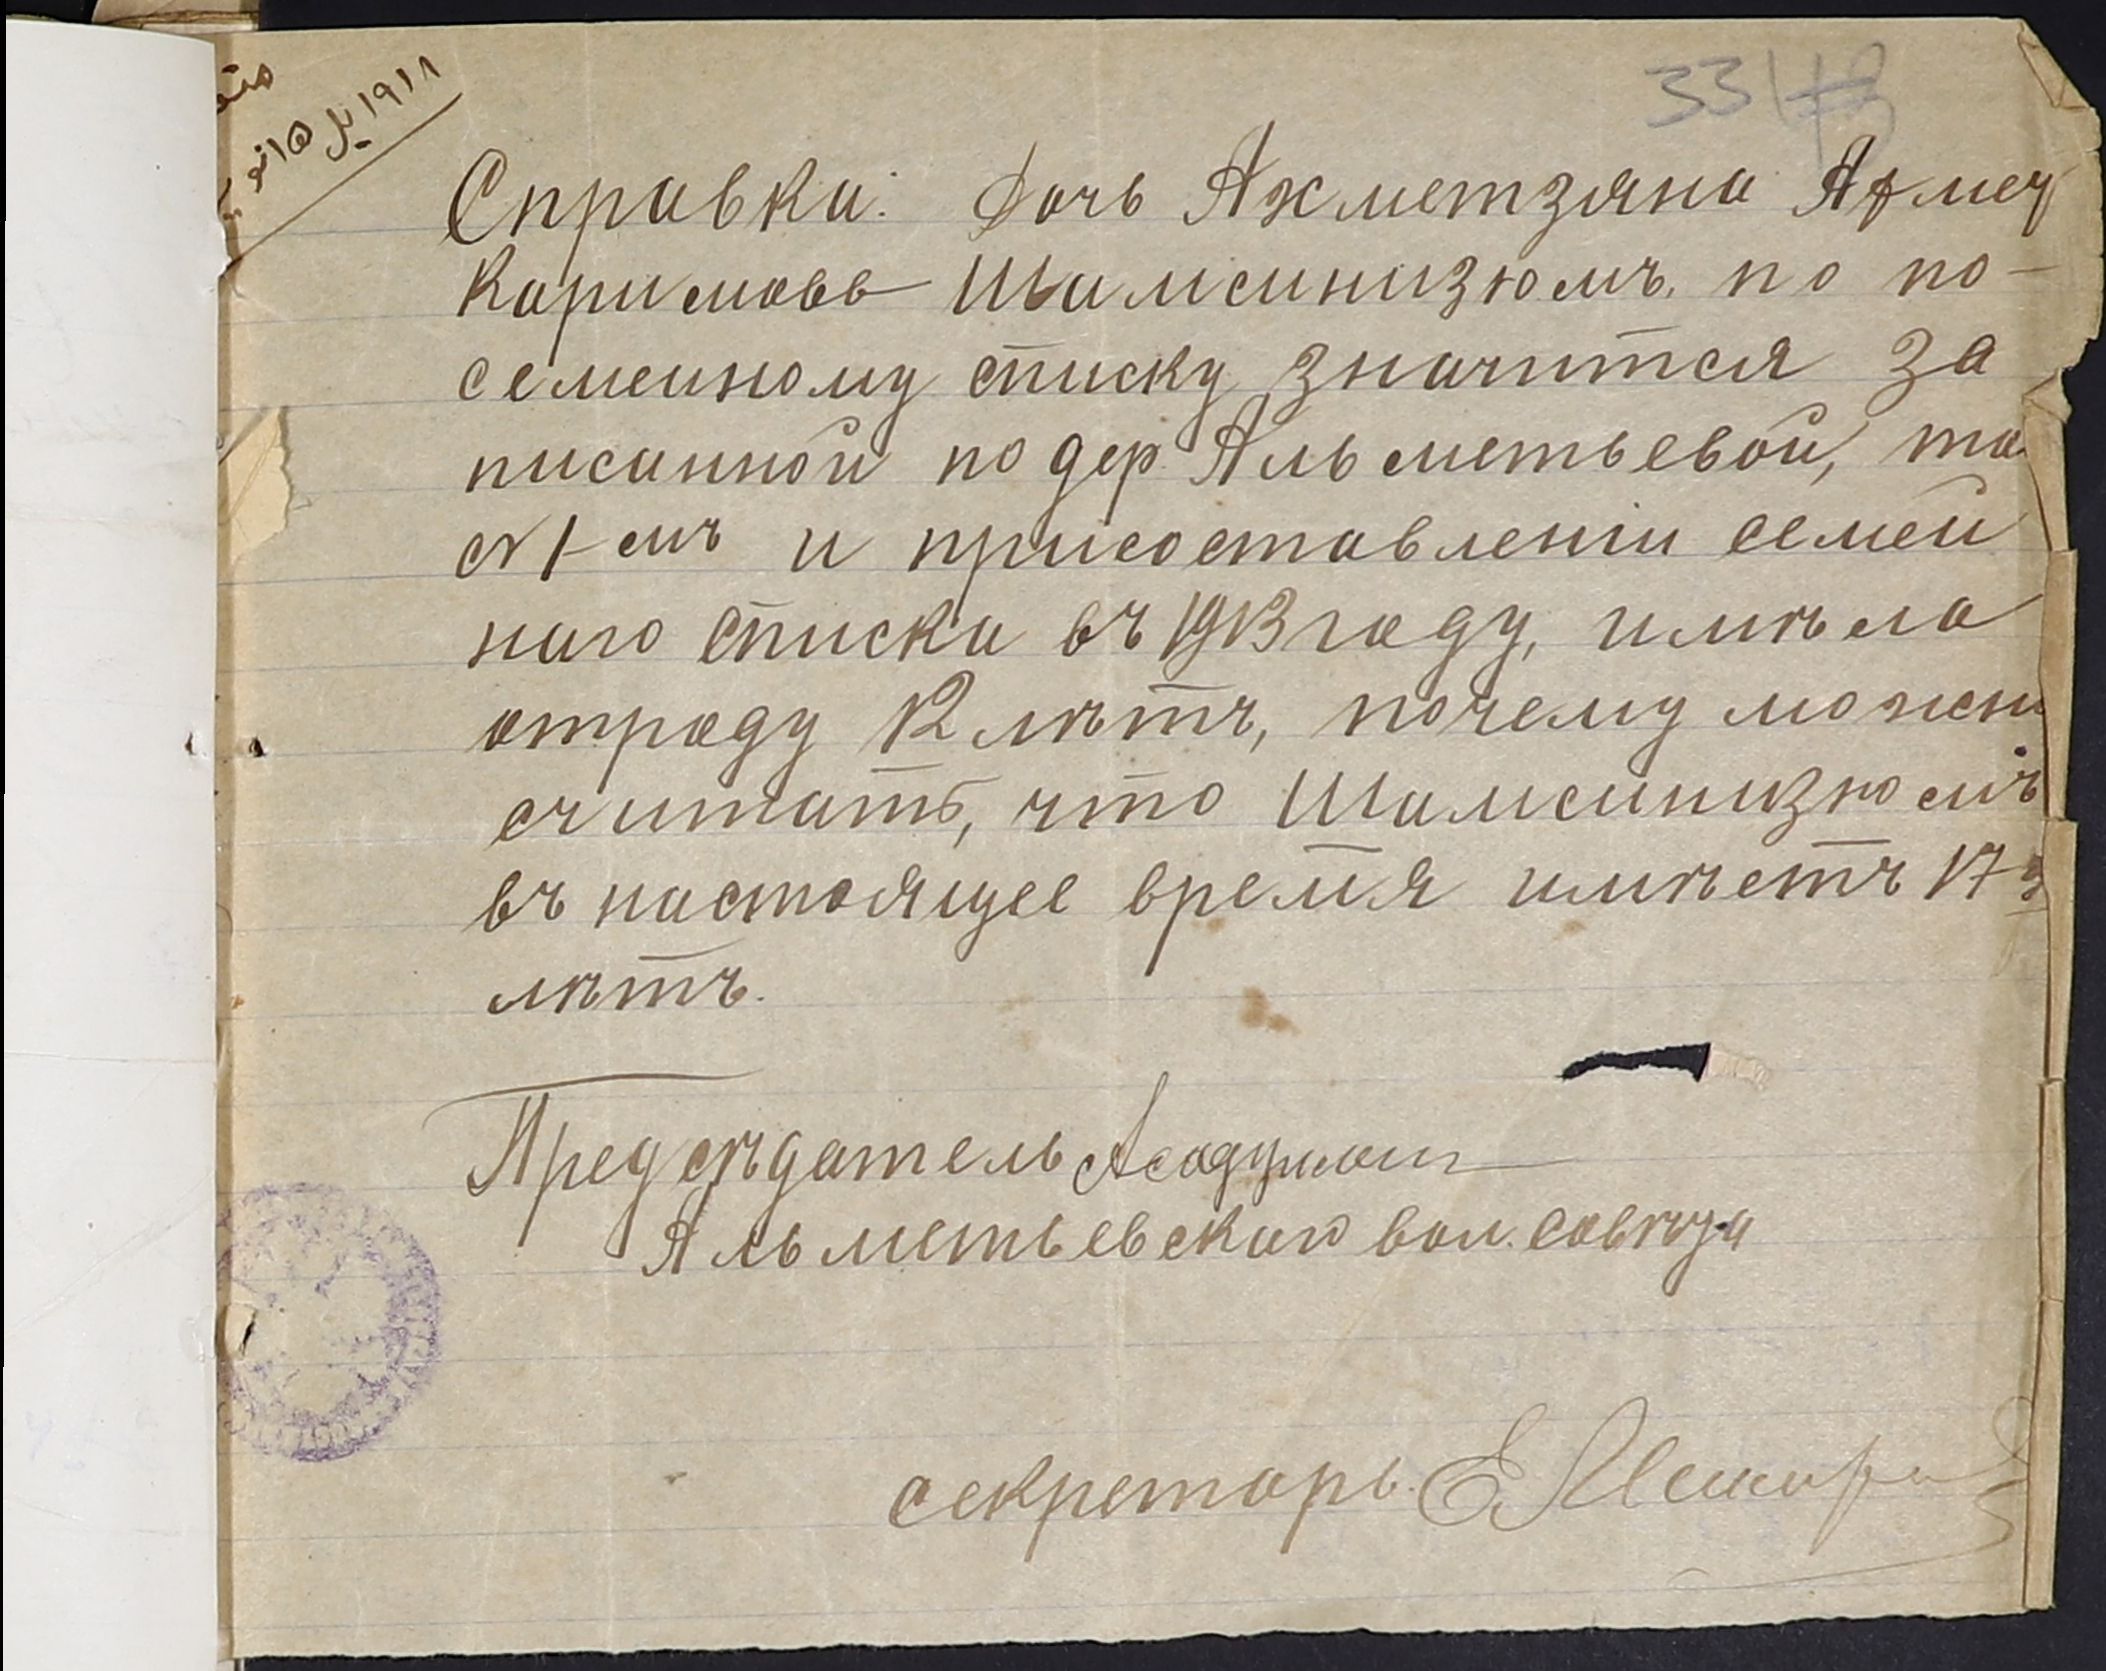 ١٩١٨ يل ١٥
331
Справка: Дочь Ахметзяна Ахмед
Каримова Шамсинизюмъ, по по-
семейному списку значится за
писанной по дер. Альметьевой, та
№1-мъ и присоставленiи семей
наго списка въ 1913 году, имѣла
отроду 12 лѣтъ, почему можн
считать, что Шамсинизюмъ
въ настоящее время имѣетъ 17
лѣтъ.
Предсѣдатель
Альметьевскаго вол. совѣта
секретарь Е.